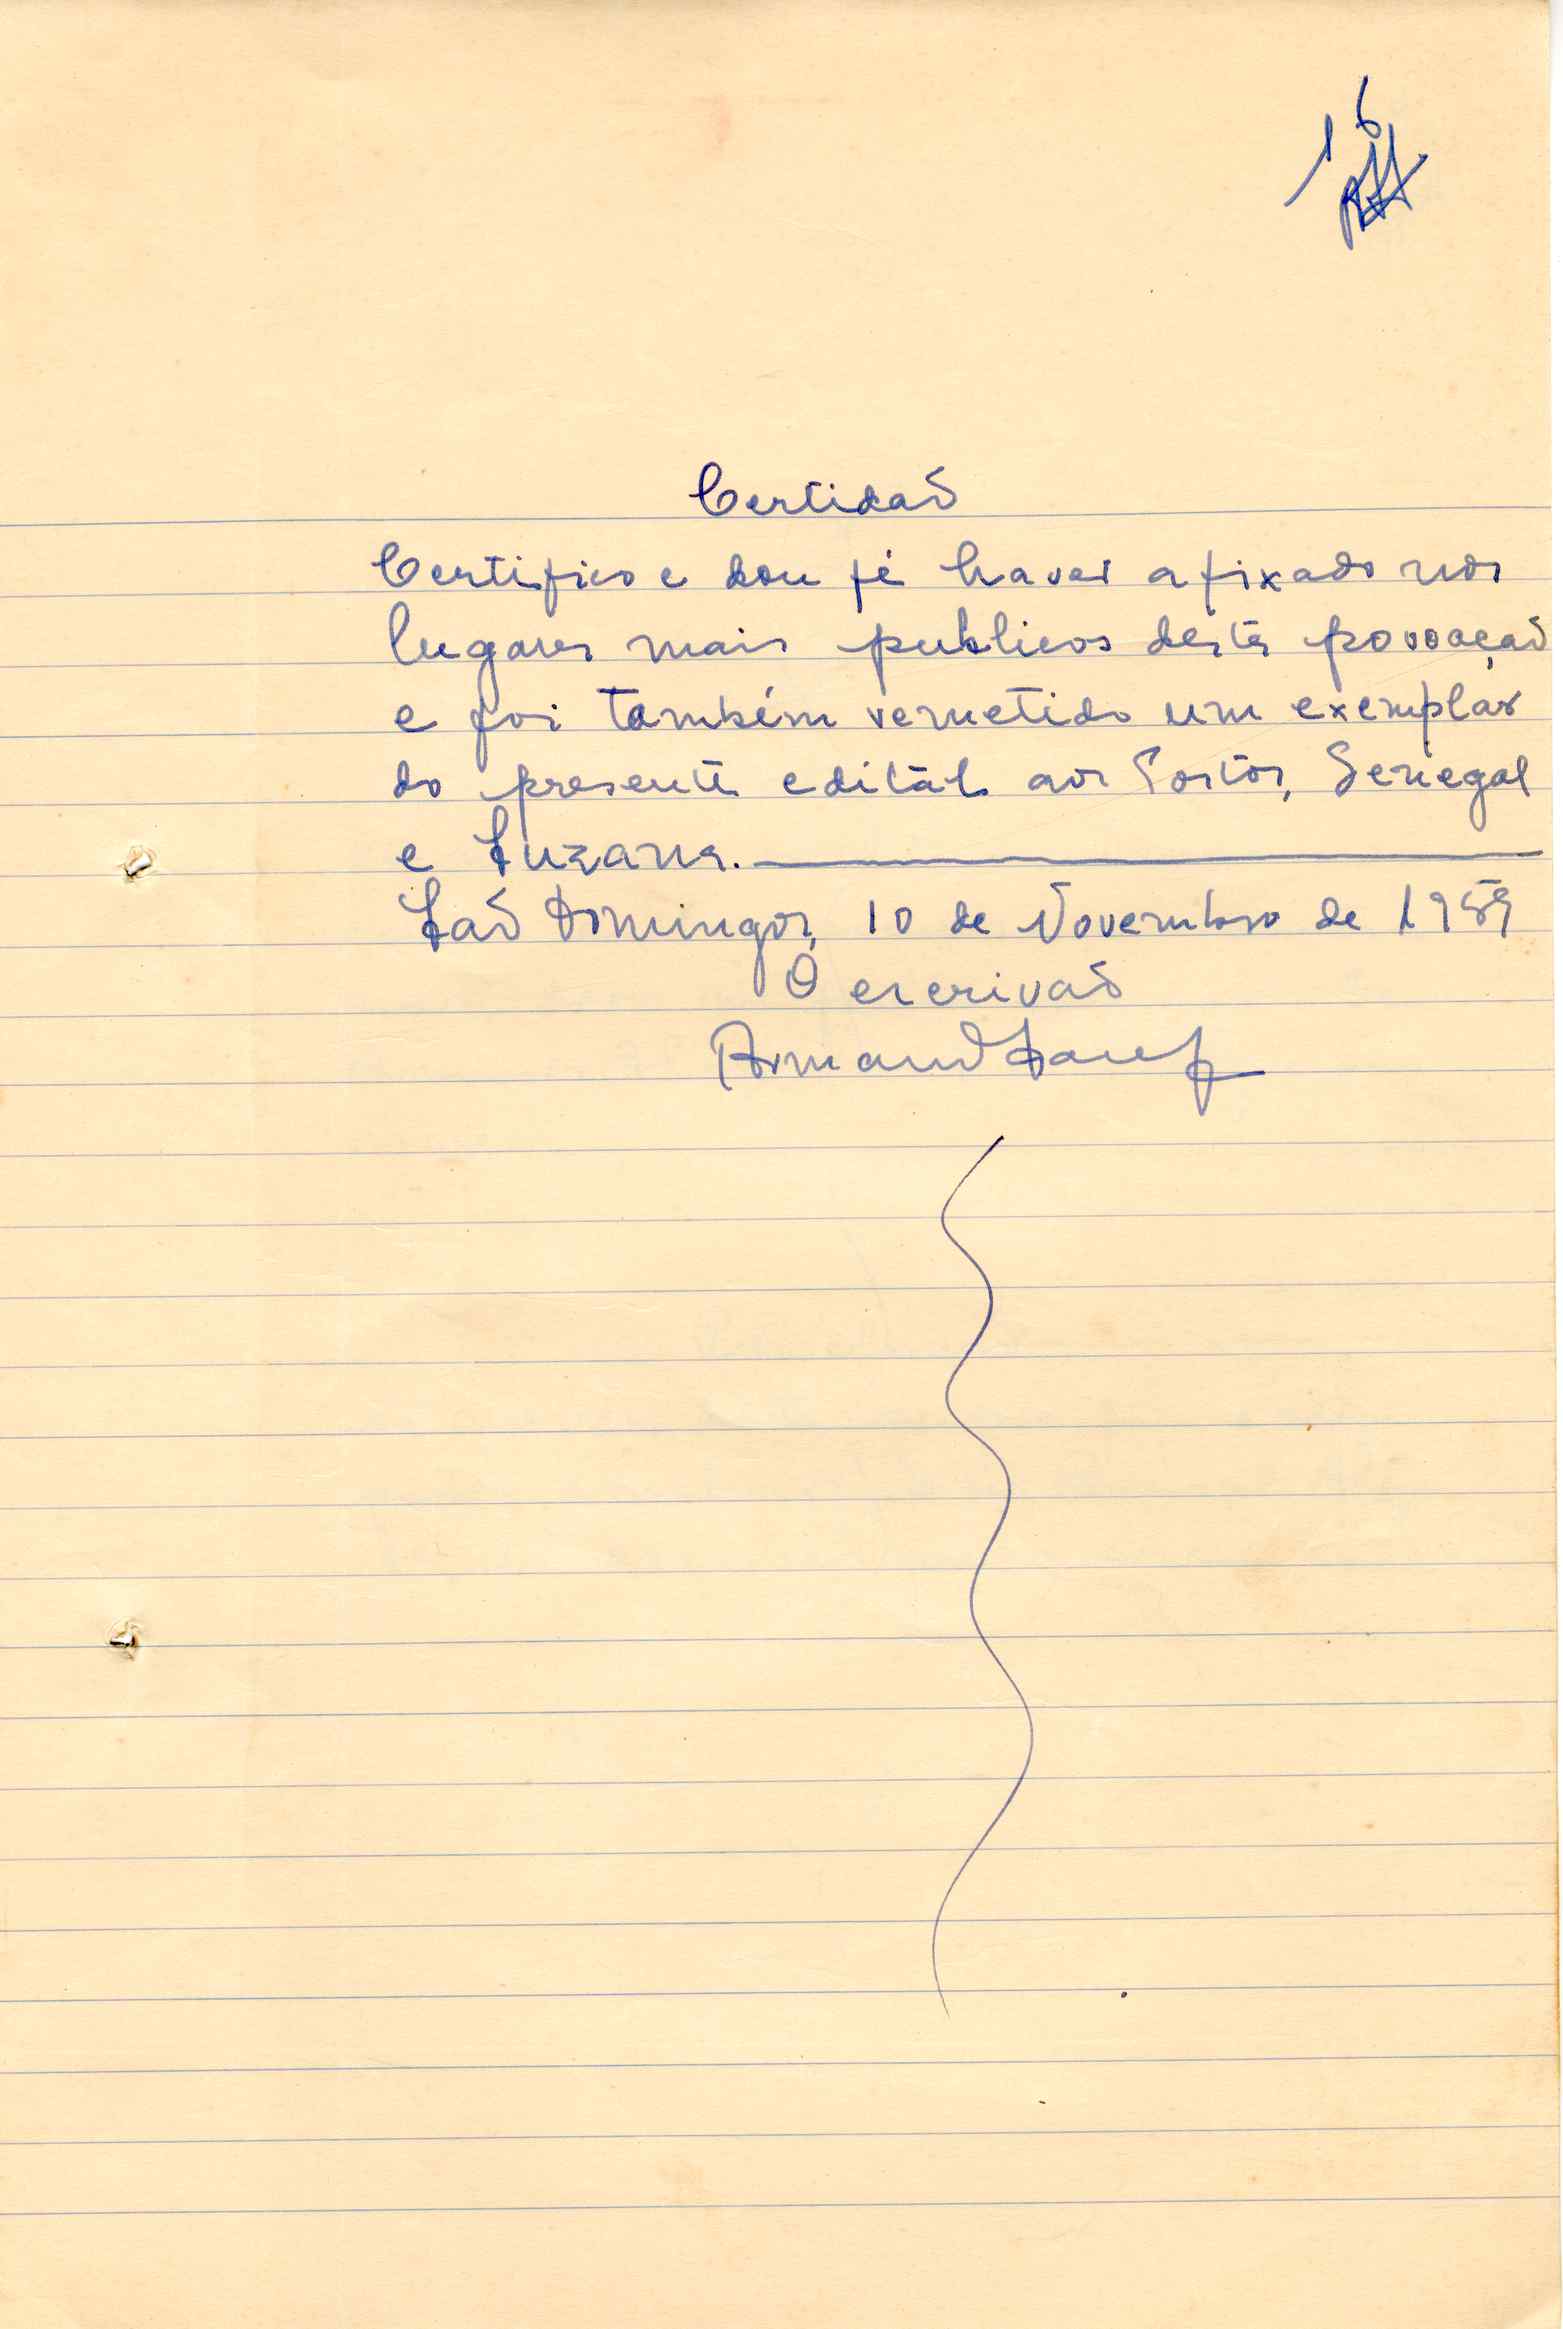 16
Certidaõ
Certifico e dou fé haver afixado nos
lugares mais publicos desta povoaçaõ
e foi também remetido um exemplar
do presente editál aos Postos, Senegal
e Suzana.
Saõ Domingos, 10 de Novembro de 1959
O escrivaõ